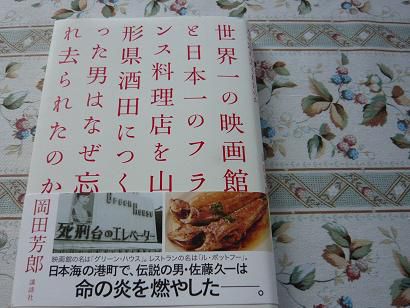 世界一の映画館
と日本一のフラ
ンス料理店を山
形県酒田につく
った男はなぜ忘
れ去られたのか
岡田芳郎
講談社
Green House
死刑台のエレベーター
映画館の名は「グリーン・ハウス」。レストランの名は「ル・ポットフー」。
日本海の港町で、伝説の男・佐藤久一は
命の炎を燃やした――。